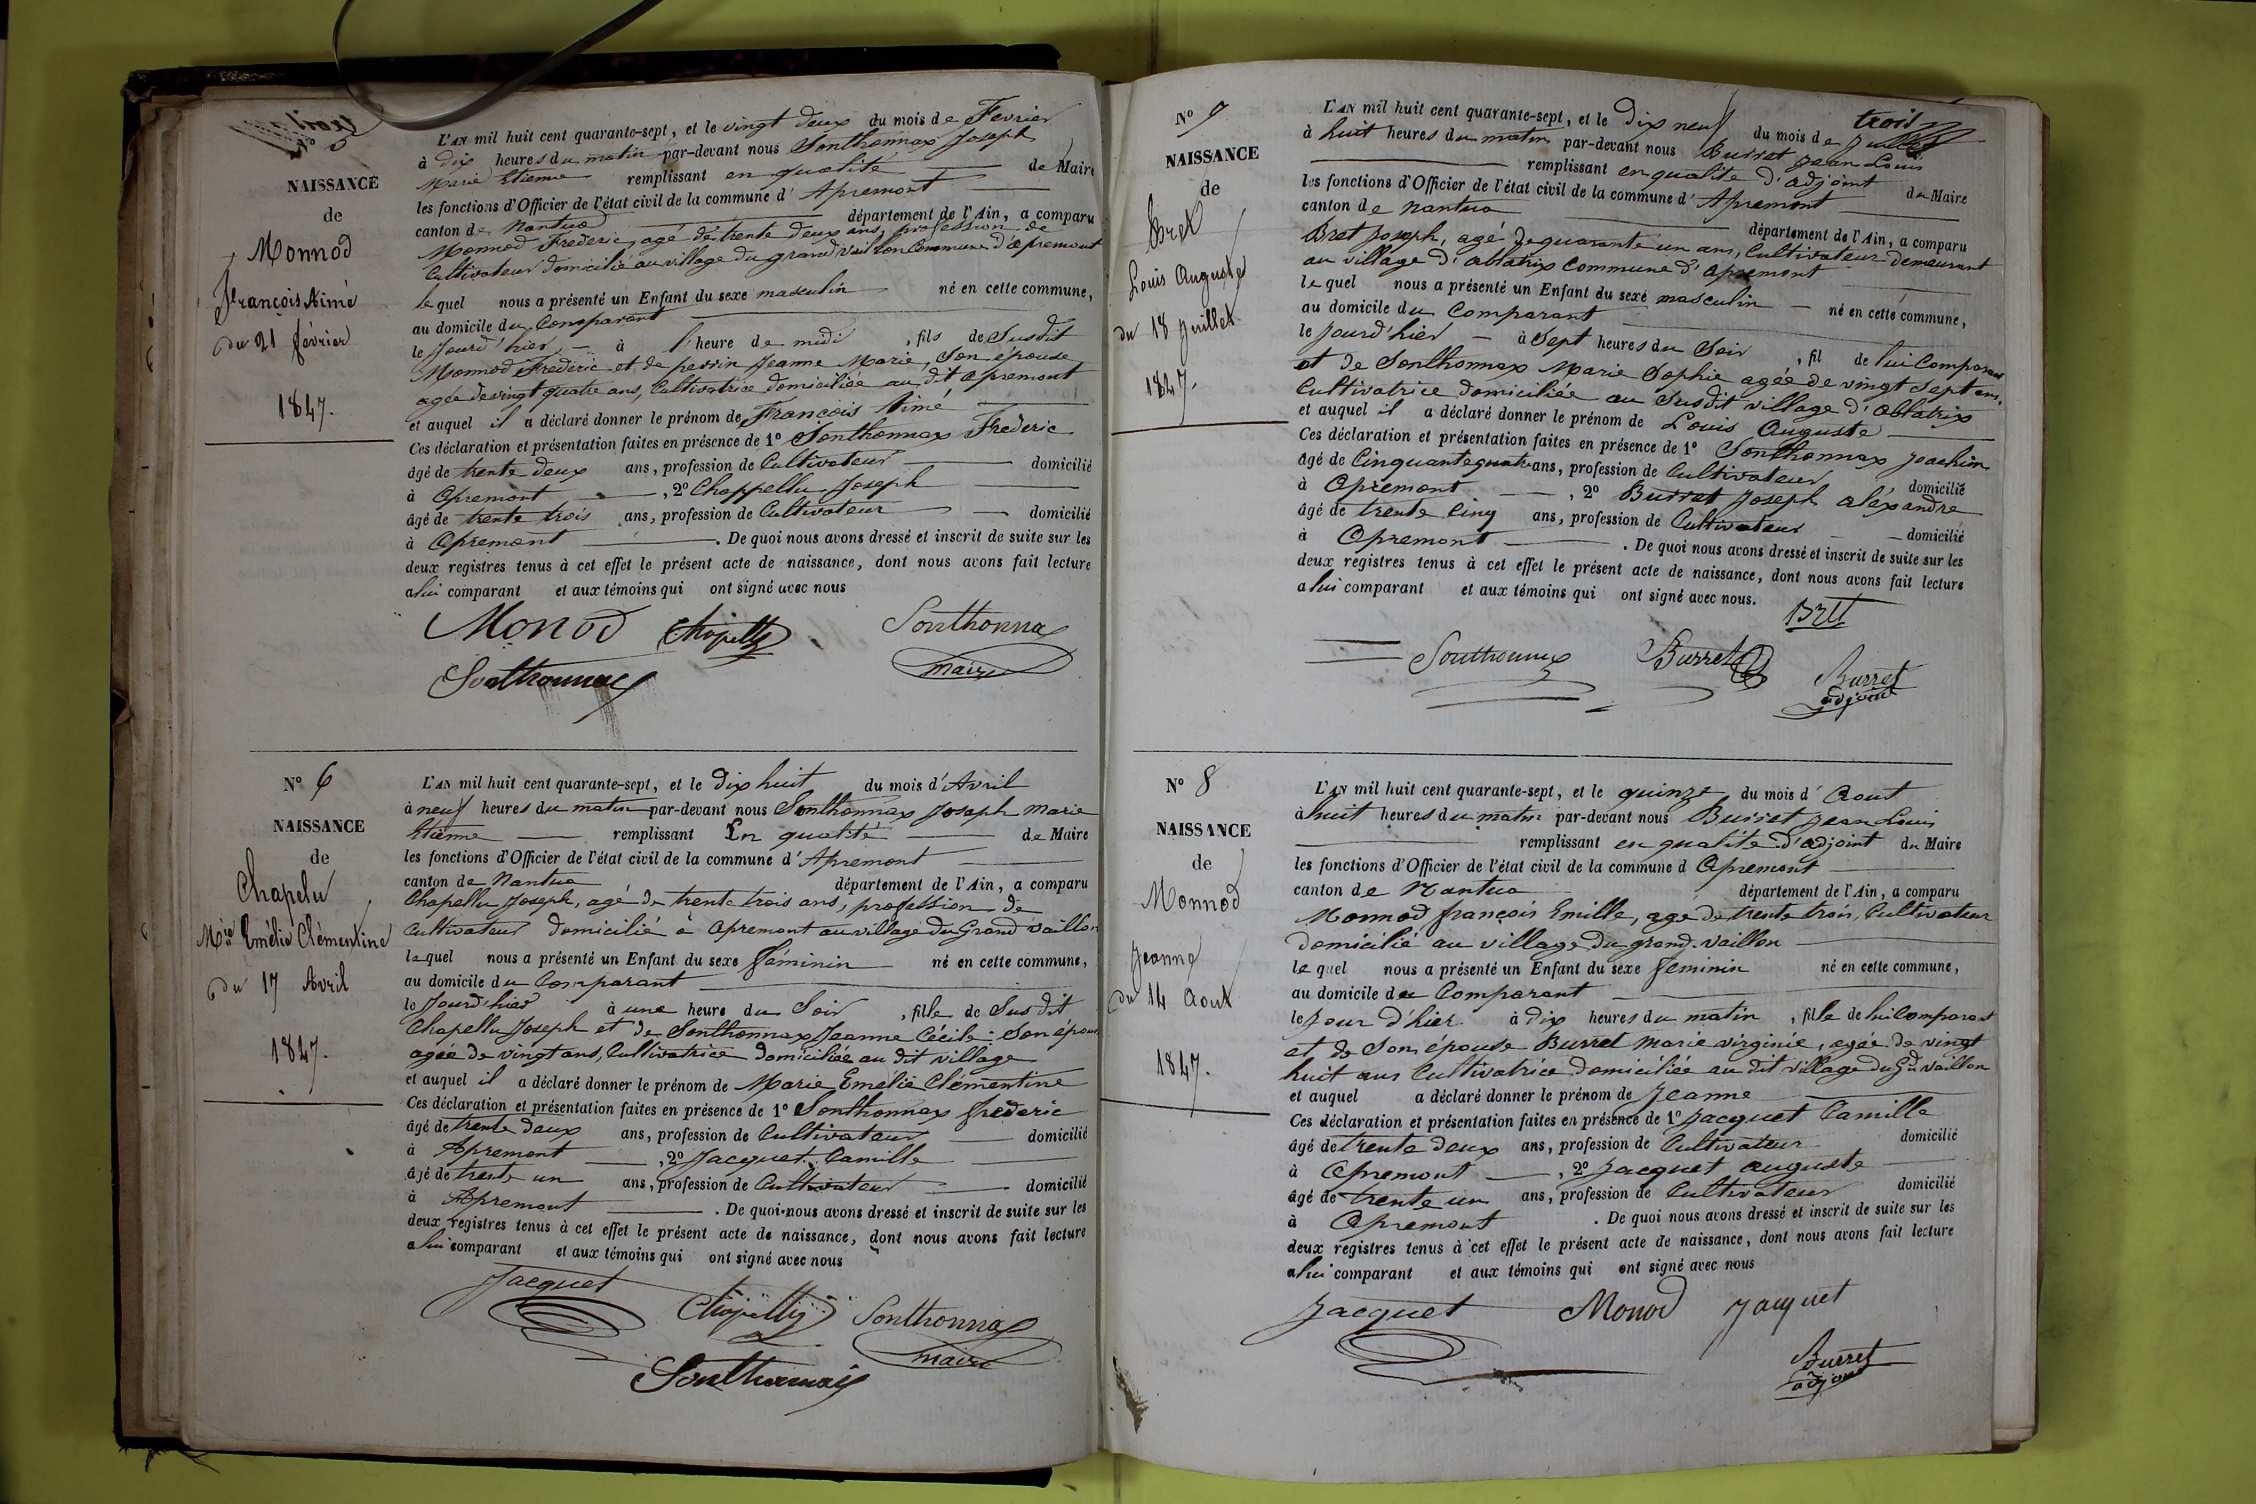 Nº 5
NAISSANCE
de
Monnod
François Aimé
du 21 février
1847.
L'AN mil huit cent quarante-sept, et le vingt deux du mois de Fevrier
à dix heures du matin par-devant nous Sonthonnax Joseph
Marie Etienne remplissant en qualité de Maire
les fonctions d'Officier de l'état civil de la commune d'Apremont
canton de Nantua département de l'Ain, a comparu
Monnod Frederic, agé de trente deux ans, profession de
Cultivateur domicilié au village du grand vaillon Commune d'apremont
lequel nous a présenté un Enfant du sexe masculin né en cette commune,
au domicile du Comparant
le Jourd'hier à l'heure de midi, fils de Susdit
Monnod Frederic et de perrin Jeanne Marie, Son épouse
agée de vingt quatre ans, Cultivatrice domiciliée au dit apremont
et auquel il a déclaré donner le prénom de François Aimé
Ces déclaration et présentation faites en présence de 1º Sonthonnax Frederic
âgé de trente deux ans, profession de Cultivateur domicilié
à Apremont, 2º Chappellu Joseph
âgé de trente trois ans, profession de Cultivateur domicilié
à Apremont. De quoi nous avons dressé et inscrit de suite sur les
deux registres tenus à cet effet le présent acte de naissance, dont nous avons fait lecture
a lui comparant et aux témoins qui ont signé avec nous
Monod Chapellu Sonthonnax
maire
Sonthonnax
Nº 6
NAISSANCE
de
Chapelu
Mie Emélie Clémentine
du 17 Avril
1847.
L'AN mil huit cent quarante-sept, et le Dix huit du mois d'Avril
à neuf heures du matin par-devant nous Sonthonnax Joseph Marie
Etienne remplissant En qualité de Maire
les fonctions d'Officier de l'état civil de la commune d'Apremont
canton de Nantua département de l'Ain, a comparu
Chapellu Joseph, agé de trente trois ans, profession de
Cultivateur domicilié à Apremont au village du Grand vaillon
lequel nous a présenté un Enfant du sexe féminin né en cette commune,
au domicile du Comparant
le Jourd'hier à une heure du Soir, fille de Sus dit
Chapellu Joseph et de Sonthonnax Jeanne Cécile Son épouse
agée de vingt ans, Cultivatrice domiciliée au dit village
et auquel il a déclaré donner le prénom de Marie Emelie Clémentine
Ces déclaration et présentation faites en présence de 1º Sonthonnax frederic
âgé de trente deux ans, profession de Cultivateur domicilié
à Apremont, 2º Jacquet Camille
âgé de trente un ans, profession de Cultivateur domicilié
à Apremont. De quoi nous avons dressé et inscrit de suite sur les
deux registres tenus à cet effet le présent acte de naissance, dont nous avons fait lecture
a lui comparant et aux témoins qui ont signé avec nous
Jacquet Chapellu Sonthonnax
maire
Sonthonnax
trois
Nº 7
NAISSANCE
de
Bret
Louis Auguste
du 18 Juillet
1847.
L'AN mil huit cent quarante-sept, et le Dix neuf du mois de Juillet
à huit heures du matin par-devant nous Burret Jean Louis
remplissant en qualité d'adjoint du Maire
les fonctions d'Officier de l'état civil de la commune d'Apremont
canton de Nantua département de l'Ain, a comparu
Bret Joseph, agé de quarante un ans, Cultivateur demeurant
au village d'ablatrix Commune d'apremont
lequel nous a présenté un Enfant du sexe masculin né en cette commune,
au domicile du Comparant
le Jourd'hier à Sept heures du Soir, fil de lui Comparant
et de Sonthonnax Marie Sophie agée de vingt Sept ans,
Cultivatrice domiciliée au Susdit village d'ablatrix
et auquel il a déclaré donner le prénom de Louis Auguste
Ces déclaration et présentation faites en présence de 1º Sonthonnax Joachim
âgé de Cinquante quatre ans, profession de Cultivateur domicilié
à Apremont, 2º Burret Joseph aléxandre
âgé de trente Cinq ans, profession de Cultivateur domicilié
à Apremont. De quoi nous avons dressé et inscrit de suite sur les
deux registres tenus à cet effet le présent acte de naissance, dont nous avons fait lecture
a lui comparant et aux témoins qui ont signé avec nous.
Bret
Sonthonnax Burret Burret
adjoint
Nº 8
NAISSANCE
de
Monnod
Jeanne
du 14 Aout
1847.
L'AN mil huit cent quarante-sept, et le quinze du mois d'Aout
à huit heures du matin par-devant nous Burret Jean Louis
remplissant en qualité d'adjoint du Maire
les fonctions d'Officier de l'état civil de la commune d Apremont
canton de Nantua département de l'Ain, a comparu
Monnod françois Emille, agé de trente trois, Cultivateur
domicilié au village du grand vaillon
lequel nous a présenté un Enfant du sexe feminin né en cette commune,
au domicile du Comparant
le Jour d'hier à dix heures du matin, fille de lui Comparant
et de Son épouse Burret Marie virginie, agée de vingt
huit ans Cultivatrice domiciliée au dit village du Gd vaillon
et auquel a déclaré donner le prénom de Jeanne
Ces déclaration et présentation faites en présence de 1º Jacquet Camille
âgé de trente deux ans, profession de Cultivateur domicilié
à Apremont, 2º Jacquet auguste
âgé de trente un ans, profession de Cultivateur domicilié
à Apremont. De quoi nous avons dressé et inscrit de suite sur les
deux registres tenus à cet effet le présent acte de naissance, dont nous avons fait lecture
a lui comparant et aux témoins qui ont signé avec nous
Jacquet Monod Jacquet
Burret
adjoint